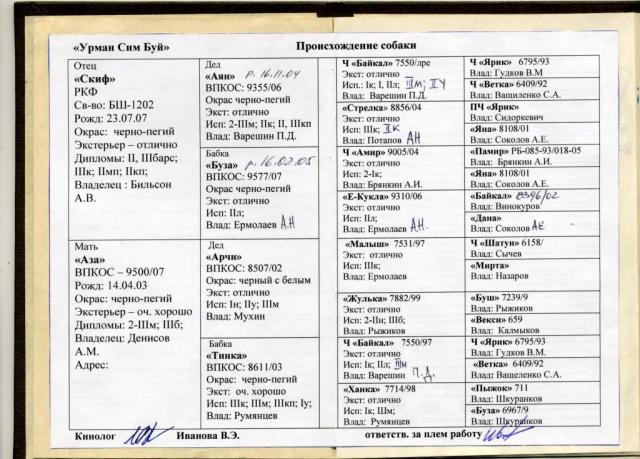 «Урман Сим Буй» Происхождение собаки
Отец
«Скиф»
РКФ
Св-во: БШ-1202
Рожд: 23.07.07
Окрас: черно-пегий
Экстерьер – отлично
Дипломы: II, IIIбарс;
IIIк; IIмп; IIкп;
Владелец : Бильсон
А.В.
Мать
«Аза»
ВПКОС – 9500/07
Рожд: 14.04.03
Окрас: черно-пегий
Экстерьер – оч. хорошо
Дипломы: 2-IIIм; IIIб;
Владелец: Денисов
А.М.
Адрес:
Дед
«Аян» р. 16.11.04
ВПКОС: 9355/06
Окрас черно-пегий
Экст: отлично
Исп: 2-IIIм; IIк; II, IIIкп
Влад: Варешин П.Д.
Бабка
«Буза» р. 16.02.05
ВПКОС: 9577/07
Окрас черно-пегий
Экст: отлично
Исп: IIл;
Влад: Ермолаев А.Н
Дед
«Арчи»
ВПКОС: 8507/02
Окрас: черный с белым
Экст: отлично
Исп: Iн; IIу; IIIм
Влад: Мухин
Бабка
«Тинка»
ВПКОС: 8611/03
Окрас: черно-пегий
Экст: оч. хорошо
Исп: IIIк; IIIм; IIIкп; Iу;
Влад: Румянцев
Ч «Байкал» 7550/лре
Экст: отлично
Исп.: Iк; I, IIл; IIIм; IIу
Влад: Варешин П.Д.
«Стрелка» 8856/04
Экст: отлично
Исп: IIIк; IIк
Влад: Потапов АН
Ч «Амир» 9005/04
Экст: отлично
Исп: 2-Iк;
Влад: Брянкин А.И.
«Е-Кукла» 9310/06
Экст: отлично
Исп: IIл;
Влад: Ермолаев А.Н.
«Малыш» 7531/97
Экст: отлично
Исп: IIIк;
Влад: Ермолаев
«Жулька» 7882/99
Экст: отлично
Исп: 2-IIн; IIIб;
Влад: Рыжиков
Ч «Байкал» 7550/97
Экст: отлично
Исп: Iк; IIл; IIIм
Влад: Варешин П.Д.
«Ханка» 7714/98
Экст: отлично
Исп: Iк; IIIм;
Влад: Румянцев
Ч «Ярик» 6795/93
Влад: Гудков В.М
Ч «Ветка» 6409/92
Влад: Ващиленко С.А.
ПЧ «Ярик»
Влад: Сидоркевич
«Яна» 8108/01
Влад: Соколов А.Е.
«Памир» РБ-085-93/018-05
Влад: Брянкин А.И.
«Яна» 8108/01
Влад: Соколов А.Е.
«Байкал» 8396/02
Влад: Винокуров
«Дана»
Влад: Соколов АЕ
Ч «Шатун» 6158/
Влад: Сычев
«Мирта»
Влад: Назаров
«Буш» 7239/9
Влад: Рыжиков
«Векси» 659
Влад: Калмыков
Ч «Ярик» 6795/93
Влад: Гудков В.М.
«Ветка» 6409/92
Влад: Ващеленко С.А.
«Пыжок» 711
Влад: Шкуранков
«Буза» 6967/9
Влад: Шкуранков
Кинолог Иванова В.Э. ответств. за плем работу